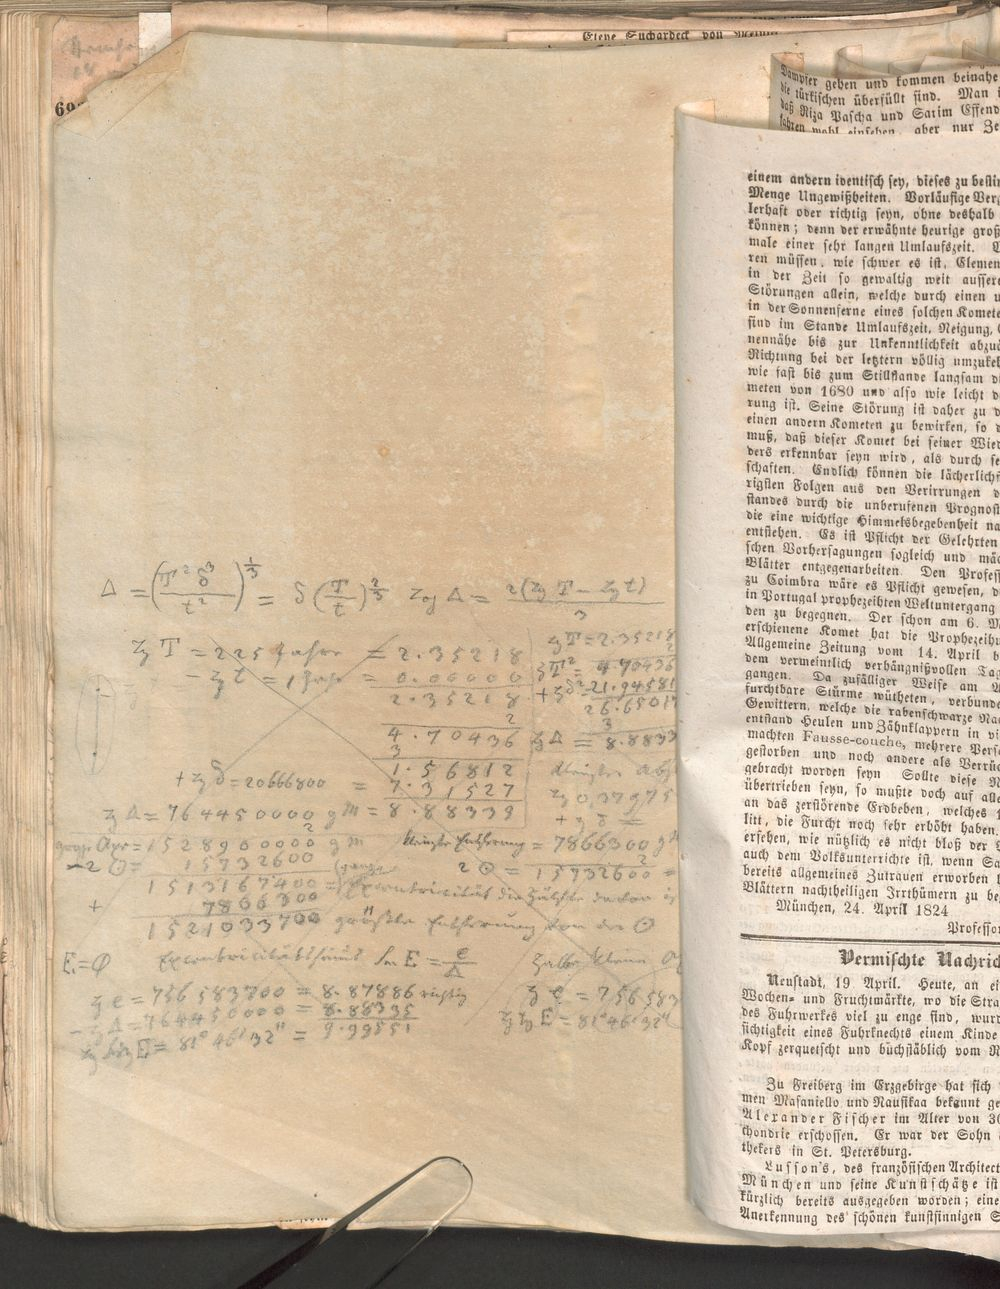 Elene Suchardeck von
69
Dampfer gehen und kommen beinahe
die türkischen überfüllt sind. Man
daß Riza Pascha und Sarim Effend
fahren wohl einsehen, aber nur Ze
Δ = (T² δ³ / t²)^⅓ = δ (T/t)^⅔ Log Δ = 2(Lg T − Lg t) / 3
Lg T = 225 Jahre = 2.35218
− Lg t = 1 Jahr = 0.00000
2.35218
2
4.70436
3
1.56812
+ Lg δ = 20666800 = 7.31527
Lg Δ = 764450000 g M = 8.88339
Lg T = 2.35218
2
Lg T² = 4.70436
+ Lg δ³ = 21.94581
26.65017
3
Lg Δ = 8.8833
kleinster Abst
Lg 0,37975
+ Lg δ =
große Axe = 1528900000 g M
2
− 2 ☉ = 15732600
1513167400 =
+ 7866300
1521033700 größte Entfernung von der ☉
kleinste Entfernung = 7866300 g M
2
2 ☉ = 15732600 =
ganze
Excentricität die Hälfte davon is
E = φ Excentricitäts Sinus E = e/Δ
halbe kleine
Lg e = 756583700 = 8.87886 richtig
− Lg Δ = 764450000 = 8.88335
E = 81° 46' 32" = 9.99551
Lg e = 756583
E = 81° 46' 32"
einem andern identisch sey, dieses zu besti
Menge Ungewißheiten. Vorläufige Ver
lerhaft oder richtig seyn, ohne deshalb
können; denn der erwähnte heurige groß
male einer sehr langen Umlaufszeit.
ren müssen, wie schwer es ist, Elemen
in der Zeit so gewaltig weit aussere
Störungen allein, welche durch einen u
in der Sonnenferne eines solchen Komete
sind im Stande Umlaufszeit, Neigung,
nennähe bis zur Unkenntlichkeit abzuä
Richtung bei der letztern völlig umzukeh
wie fast bis zum Stillstande langsam di
meten von 1680 und also wie leicht d
rung ist. Seine Störung ist daher zu d
einen andern Kometen zu bewirken, so d
muß, daß dieser Komet bei seiner Wied
ders erkennbar seyn wird, als durch se
schaften. Endlich können die lächerlichs
rigsten Folgen aus den Verirrungen d
standes durch die unberufenen Prognost
die eine wichtige Himmelsbegebenheit na
entstehen. Es ist Pflicht der Gelehrten
schen Vorhersagungen sogleich und mäc
Blätter entgegenarbeiten. Den Profess
zu Coimbra wäre es Pflicht gewesen, de
in Portugal prophezeihten Weltuntergang
den zu begegnen. Der schon am 6. M
erschienene Komet hat die Prophezeihu
Allgemeine Zeitung vom 14. April b
dem vermeintlich verhängnißvollen Tag
gangen. Da zufälliger Weise am A
furchtbare Stürme wütheten, verbunde
Gewittern, welche die rabenschwarze Nac
entstand Heulen und Zähnklappern in vi
machten Fausse-couche, mehrere Pers
gestorben und noch andere als Verrüc
gebracht worden seyn Sollte diese N
übertrieben seyn, so mußte doch auf alle
an das zerstörende Erdbeben, welches 1
litt, die Furcht noch sehr erhöht haben.
ersehen, wie nützlich es nicht bloß der
auch dem Volksunterrichte ist, wenn Sa
bereits allgemeines Zutrauen erworben
Blättern nachtheiligen Irrthümern zu be
München, 24. April 1824
Professor
Vermischte Nachric
Neustadt, 19 April. Heute, an ei
Wochen- und Fruchtmärkte, wo die Stra
des Fuhrwerkes viel zu enge sind, wurd
sichtigkeit eines Fuhrknechts einem Kinde
Kopf zerquetscht und büchstäblich vom R
Zu Freiberg im Erzgebirge hat sich
men Masaniello und Nausikaa bekannt ge
Alexander Fischer im Alter von 36
chondrie erschossen. Er war der Sohn
thekers in St. Petersburg.
Lusson's, des französischen Architect
München und seine Kunstschätze ist
kürzlich bereits ausgegeben worden; eine
Anerkennung des schönen kunstsinnigen S